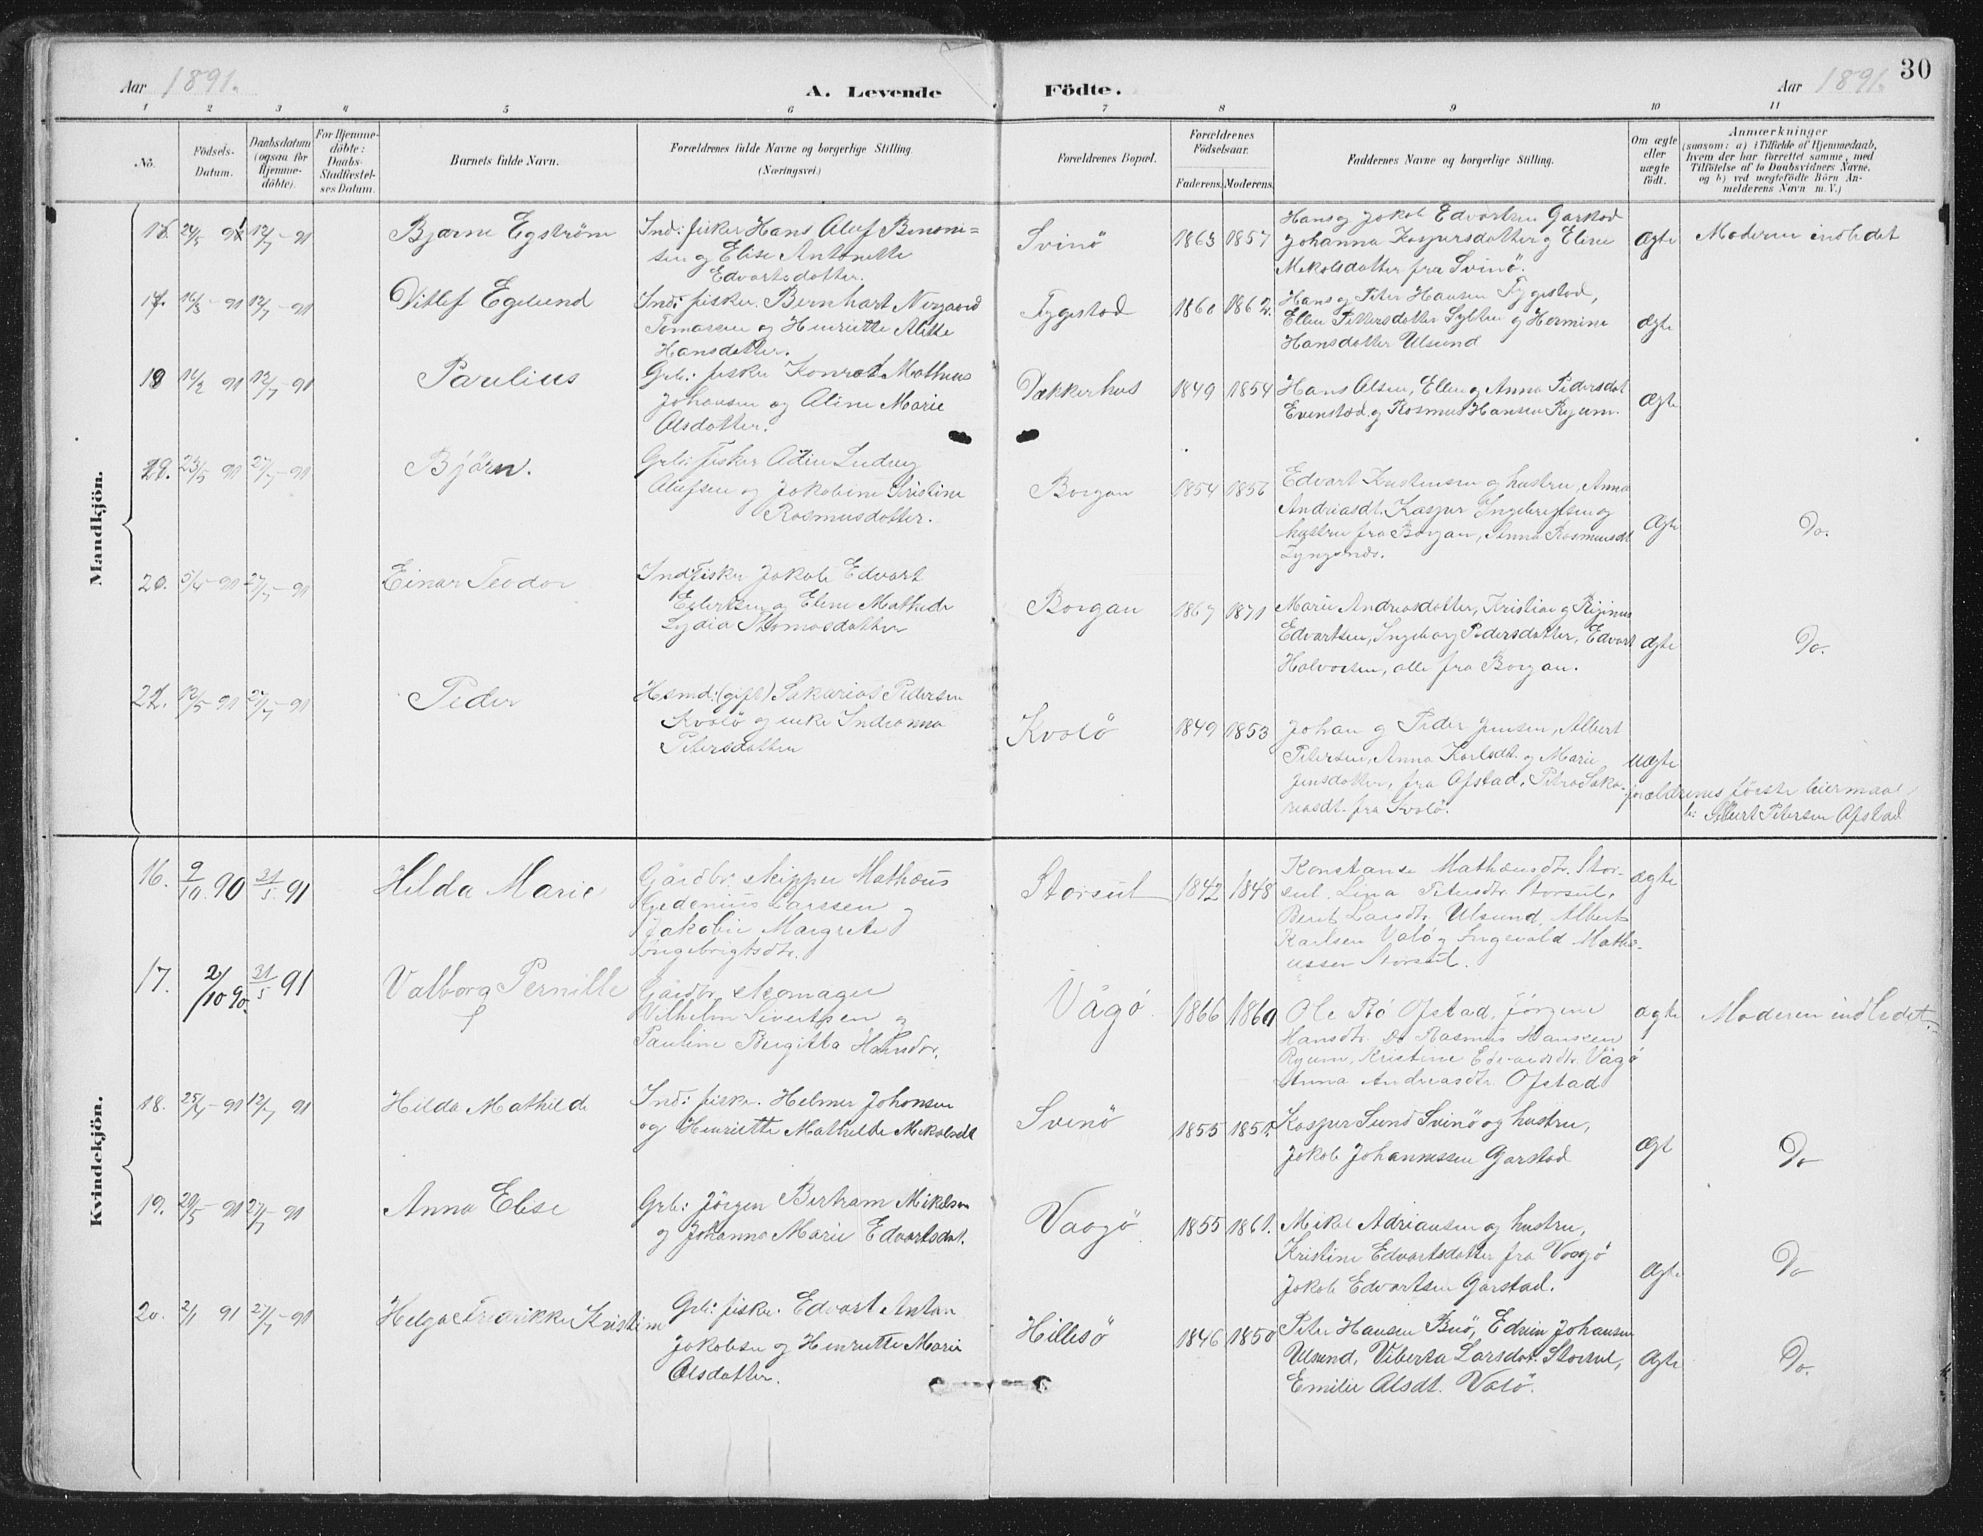 30
Aar 1891.
A. Levende
Födte.
Aar 1891.
1 2 3 4 5 6 7 8 9 10 11
No.
Födsels-
Datum.
Daabsdatum
(ogsaa for
Hjemme-
döbte).
For Hjemme-
döbte:
Daabs-
Stadfæstel-
ses Datum.
Barnets fulde Navn.
Forældrenes fulde Navne og borgerlige Stilling.
(Næringsvei.)
Forældrenes Bopæl.
Forældrenes
Födselsaar.
Faderens.
Moderens.
Faddernes Navne og borgerlige Stilling.
Om ægte
eller
uægte
födt.
Anmærkninger
(saasom: a) i Tilfælde af Hjemmedaab,
hvem der har forrettet samme, med
Tilföielse af to Daabsvidners Navne.
og b) ved uægtefödte Börn An-
melderens Navn m. V.)
Mandkjön.
24/5 91 12/7-91
Bjarne Egström
Ind: fisker Hans Aluf Benoni=
sen og Elise Antonette
Edvartsdatter.
Svinö
1863 1857
Hans og Jakob Edvartsen Garstad
Johanna Kaspersdatter og Eline
Mekolsdatter fra Svinö.
Ægte
Moderen indledet
17. 16/3-91 12/7-91
Ditlef Egelund
Ind: fisker. Bernhart Nergaard
Tomassen og Henriette Alette
Hansdatter.
Fygestad
1860 1862.
Hans og Peter Hansen Fygestad,
Ellen Pettersdatter Sylten og Hermine
Hansdatter Ulsund
Ægte
18 91 12/7-91
Paulius
Grb: fisker Konrat Matheus
Johansen og Aline Marie
Olsdatter.
Dækkerhus
1849 1854
Hans Olsen, Ellen og Anna Pedersdat
Evenstad og Rasmus Hansen Ryum.
Ægte
23/5 91 27/7-91
Björn.
Grb: fisker Odin Ludvig
Olufsen og Jakobine Kristine
Rasmusdatter.
Borgan
1854 1856
Edvart Kristensen og hustru, Anna
Andreasdt. Kasper Ingebregtsen og
hustru fra Borgan, Anna Rasmusdt
Lyngsnes.
Ægte
Do.
20. 5/4-91 27/7-91
Einar Teodor
Ind: fisker Jakob Edvart
Eilertsen og Eline Mathide
Lydia Thomasdatter
Borgan
1867 1871
Marie Andreasdatter, Kristian og Riginus
Edvartsen, Ingeborg Pedersdatter, Edvart
Halvorsen, alle fra Borgan.
Ægte
Do.
12/5 91 27/7-91
Peder
Hsmd: (gift) Sakarias Pedersen
Kvalö og enke Indianna
Petersdatter
Kvalö
1849 1853
Johan og Peder Jensen, Albert
Petersen, Anna Karlsdt. og Marie
Jensdatter, fra Ofstad, Petra Saka-
riasdt. fra Kvalö.
uægte
forældrenes förste leiermaal
b: Albert Petersen Ofstad
Kvindekjön.
16. 9/10. 90 31/5. 91
Hilda Marie
Gårdbr. skipper Mathæus
Gedenius Larssen og
Jakobie Margrete
Ingebrigtsdtr.
Storsul
1842 1848
Konstanse Mathæusdtr. Stor-
sul. Lina Petersdtr. Storsul.
Berit Larsdtr. Ulsund, Albert
Karlsen Valö og Ingevald Mathæ-
ussen Storsul.
ægte
17. 2/10 90. 31/5 91
Valborg Pernille
Gårdbr. skomager
Wilhelm Sivertsen og
Pauline Bergitta Hansdr.
Vågö
1866 1860
Ole Bö Ofstad, Jörgine
Hansdtr. Do Rasmus Hansen
Ryum, Kristine Edvardsdtr. Vågö
Anna Andreasdtr. Ofstad
ægte
Moderen indledet.
18. 25/4-91 12/7 91
Hilda Mathilde
Ind: fisker. Helmer Johansen
og Henriette Mathilde Mekolsdt
Svinö
1855 1851.
Kasper Sund Svinö og hustru,
Jakob Johannessen Garstad
Ægt
Do
19. 20/5-91 27/7-91
Anna Elise
Grb: Jörgen Bertram Mikelsen
og Johanna Marie Edvartsdat.
Vaagö
1855 1861.
Mikel Adriansen og hustru,
Kristine Edvartsdatter fra Vaagö
Jakob Edvartsen Garstad.
Ægte
Do
20. 2/1 91 27/7-91
Helga Fredrikke Kristine
Grb: fisker. Edvart Anton
Jakobsen og Henriette Marie
Olsdatter.
Hillesö
1846 1850
Peter Hansen Buö, Edvin Johansen
Ulsund, Viberta Larsdat. Storsul,
Emilie Olsdt. Valö.
Ægte
Do.